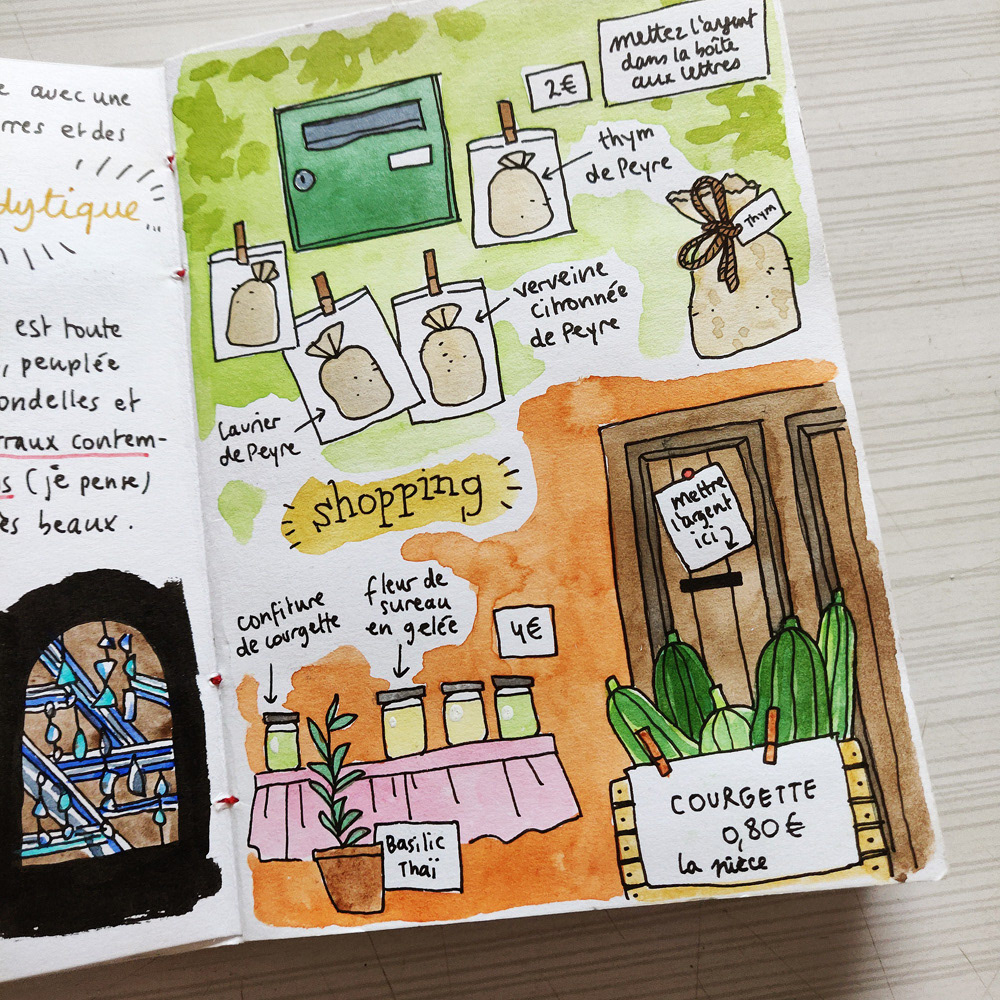 avec une
et des
est toute
, peuplée
et
contem-
(je pense)
beaux.
mettez l'argent
dans la boîte
aux lettres
2€
thym
de Peyre
Thym
verveine
citronnée
de Peyre
laurier
de Peyre
shopping
mettre
l'argent
ici
confiture
de courgette
fleur de
sureau
en gelée
4€
Basilic
Thaï
COURGETTE
0,80€
la pièce